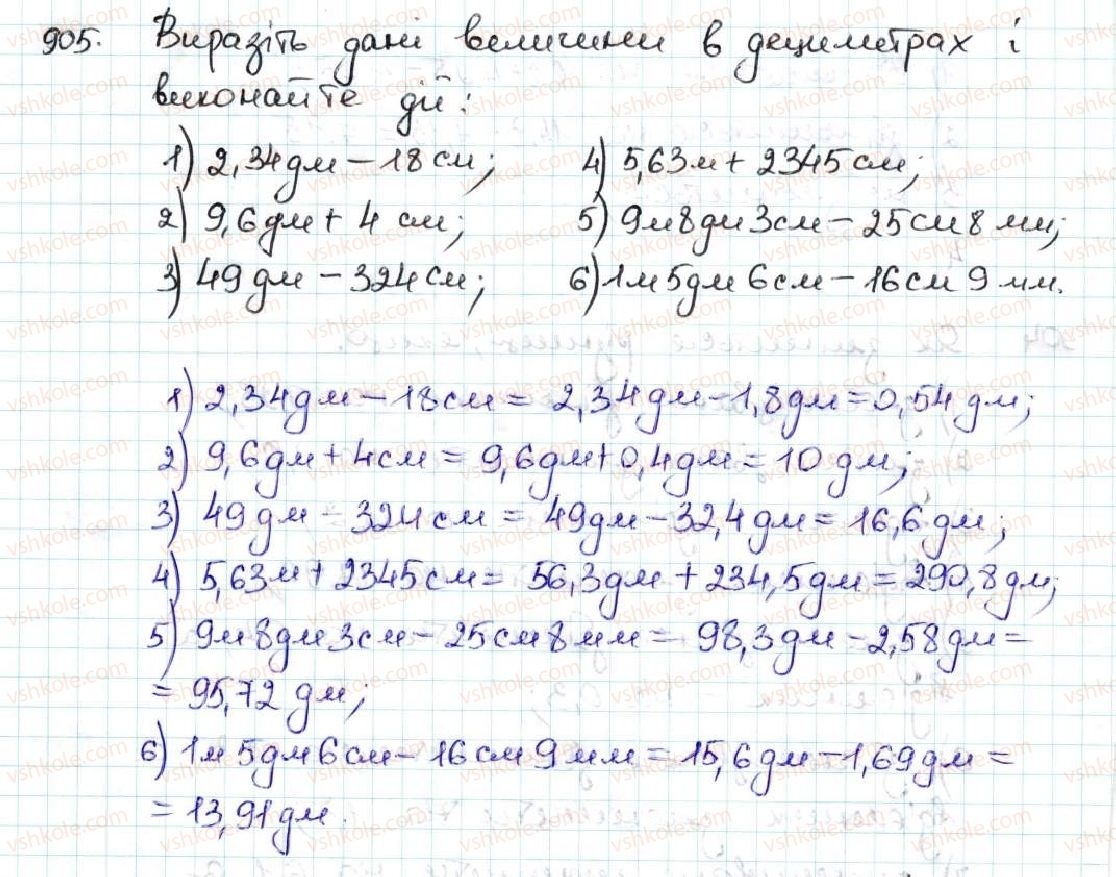 905. Виразіть дані величини в дециметрах і
виконайте дії:
1) 2,34 дм – 18 см;
2) 9,6 дм + 4 см;
3) 49 дм – 324 см;
4) 5,63 м + 2345 см;
5) 9м 8дм 3см – 25 см 8 мм;
6) 1м 5дм 6см – 16 см 9 мм.
1) 2,34 дм – 18 см = 2,34 дм – 1,8 дм = 0,54 дм;
2) 9,6 дм + 4 см = 9,6 дм + 0,4 дм = 10 дм;
3) 49 дм – 324 см = 49 дм – 32,4 дм = 16,6 дм;
4) 5,63 м + 2345 см = 56,3 дм + 234,5 дм = 290,8 дм;
5) 9м 8дм 3см – 25 см 8 мм = 98,3 дм – 2,58 дм =
= 95,72 дм;
6) 1м 5дм 6см – 16 см 9 мм = 15,6 дм – 1,69 дм =
= 13,91 дм.
vshkole.com